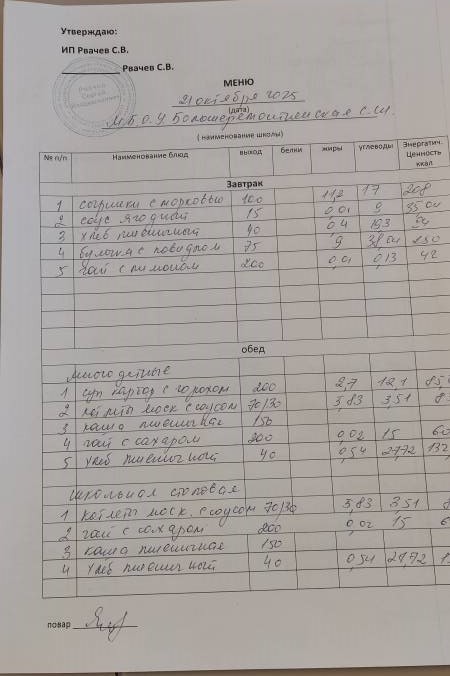 Утверждаю:
ИП Рвачев С.В.
Рвачев С.В.
МЕНЮ
21 октября 2025
(дата)
М.Б.О.У Большеремонтненская С.Ш.
( наименование школы)
№ п/п Наименование блюд выход белки жиры углеводы Энергатич. Ценность ккал
Завтрак
1 сырники с морковью 100 11,2 17 208
2 соус ягодный 15 0,01 9 35,04
3 хлеб пшеничный 40 0,4 19,3 94
4 булочка с повидлом 75 9 38,04 250
5 чай с лимоном 200 0,01 0,13 42
обед
Многодетные
1 суп картоф с горохом 200 2,7 12,1 85,
2 котлеты моск с соусом 70/30 3,83 3,51 8
3 каша пшеничная 150
4 чай с сахаром 200 0,02 15 60
5 хлеб пшеничный 40 0,54 27,72 132,
Школьная столовая
1 котлеты моск. с соусом 70/30 3,83 3,51 8
2 чай с сахаром 200 0,02 15 6
3 каша пшеничная 150
4 хлеб пшеничный 40 0,54 27,72 13
повар